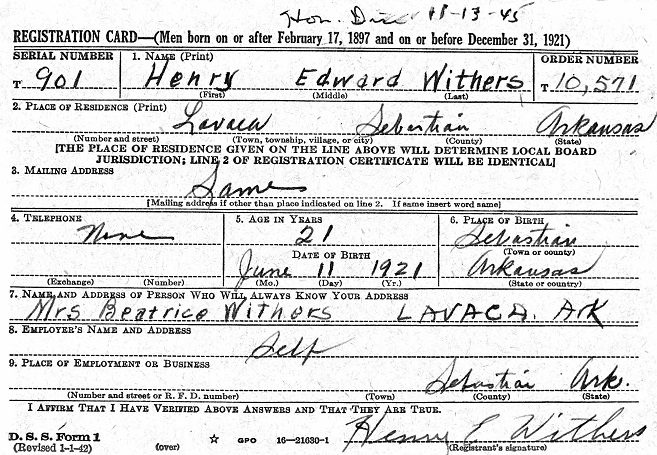 Hon. Disc 11-13-45
REGISTRATION CARD—(Men born on or after February 17, 1897 and on or before December 31, 1921)
SERIAL NUMBER 1. NAME (Print) ORDER NUMBER
T 901 Henry Edward Withers T 10,571
(First) (Middle) (Last)
2. PLACE OF RESIDENCE (Print)
Lavaca Sebastian Arkansas
(Number and street) (Town, township, village, or city) (County) (State)
[THE PLACE OF RESIDENCE GIVEN ON THE LINE ABOVE WILL DETERMINE LOCAL BOARD
JURISDICTION; LINE 2 OF REGISTRATION CERTIFICATE WILL BE IDENTICAL]
3. MAILING ADDRESS
Same
[Mailing address if other than place indicated on line 2. If same insert word same]
4. TELEPHONE 5. AGE IN YEARS 6. PLACE OF BIRTH
None 21 Sebastian
(Town or county)
DATE OF BIRTH
June 11 1921 Arkansas
(Exchange) (Number) (Mo.) (Day) (Yr.) (State or country)
7. NAME AND ADDRESS OF PERSON WHO WILL ALWAYS KNOW YOUR ADDRESS
Mrs Beatrice Withers LAVACA. Ark
8. EMPLOYER'S NAME AND ADDRESS
Self
9. PLACE OF EMPLOYMENT OR BUSINESS
Sebastian Ark.
(Number and street or R. F. D. number) (Town) (County) (State)
I AFFIRM THAT I HAVE VERIFIED ABOVE ANSWERS AND THAT THEY ARE TRUE.
D. S. S. Form 1
(Revised 1-1-42) (over) ☆ GPO 16—21630-1 Henry E Withers
(Registrant's signature)